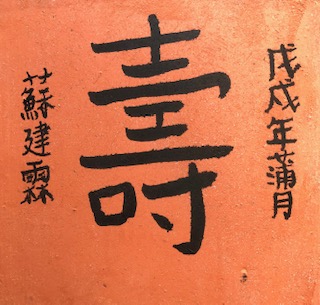 戊戌年蒲月
壽
蘇建霖